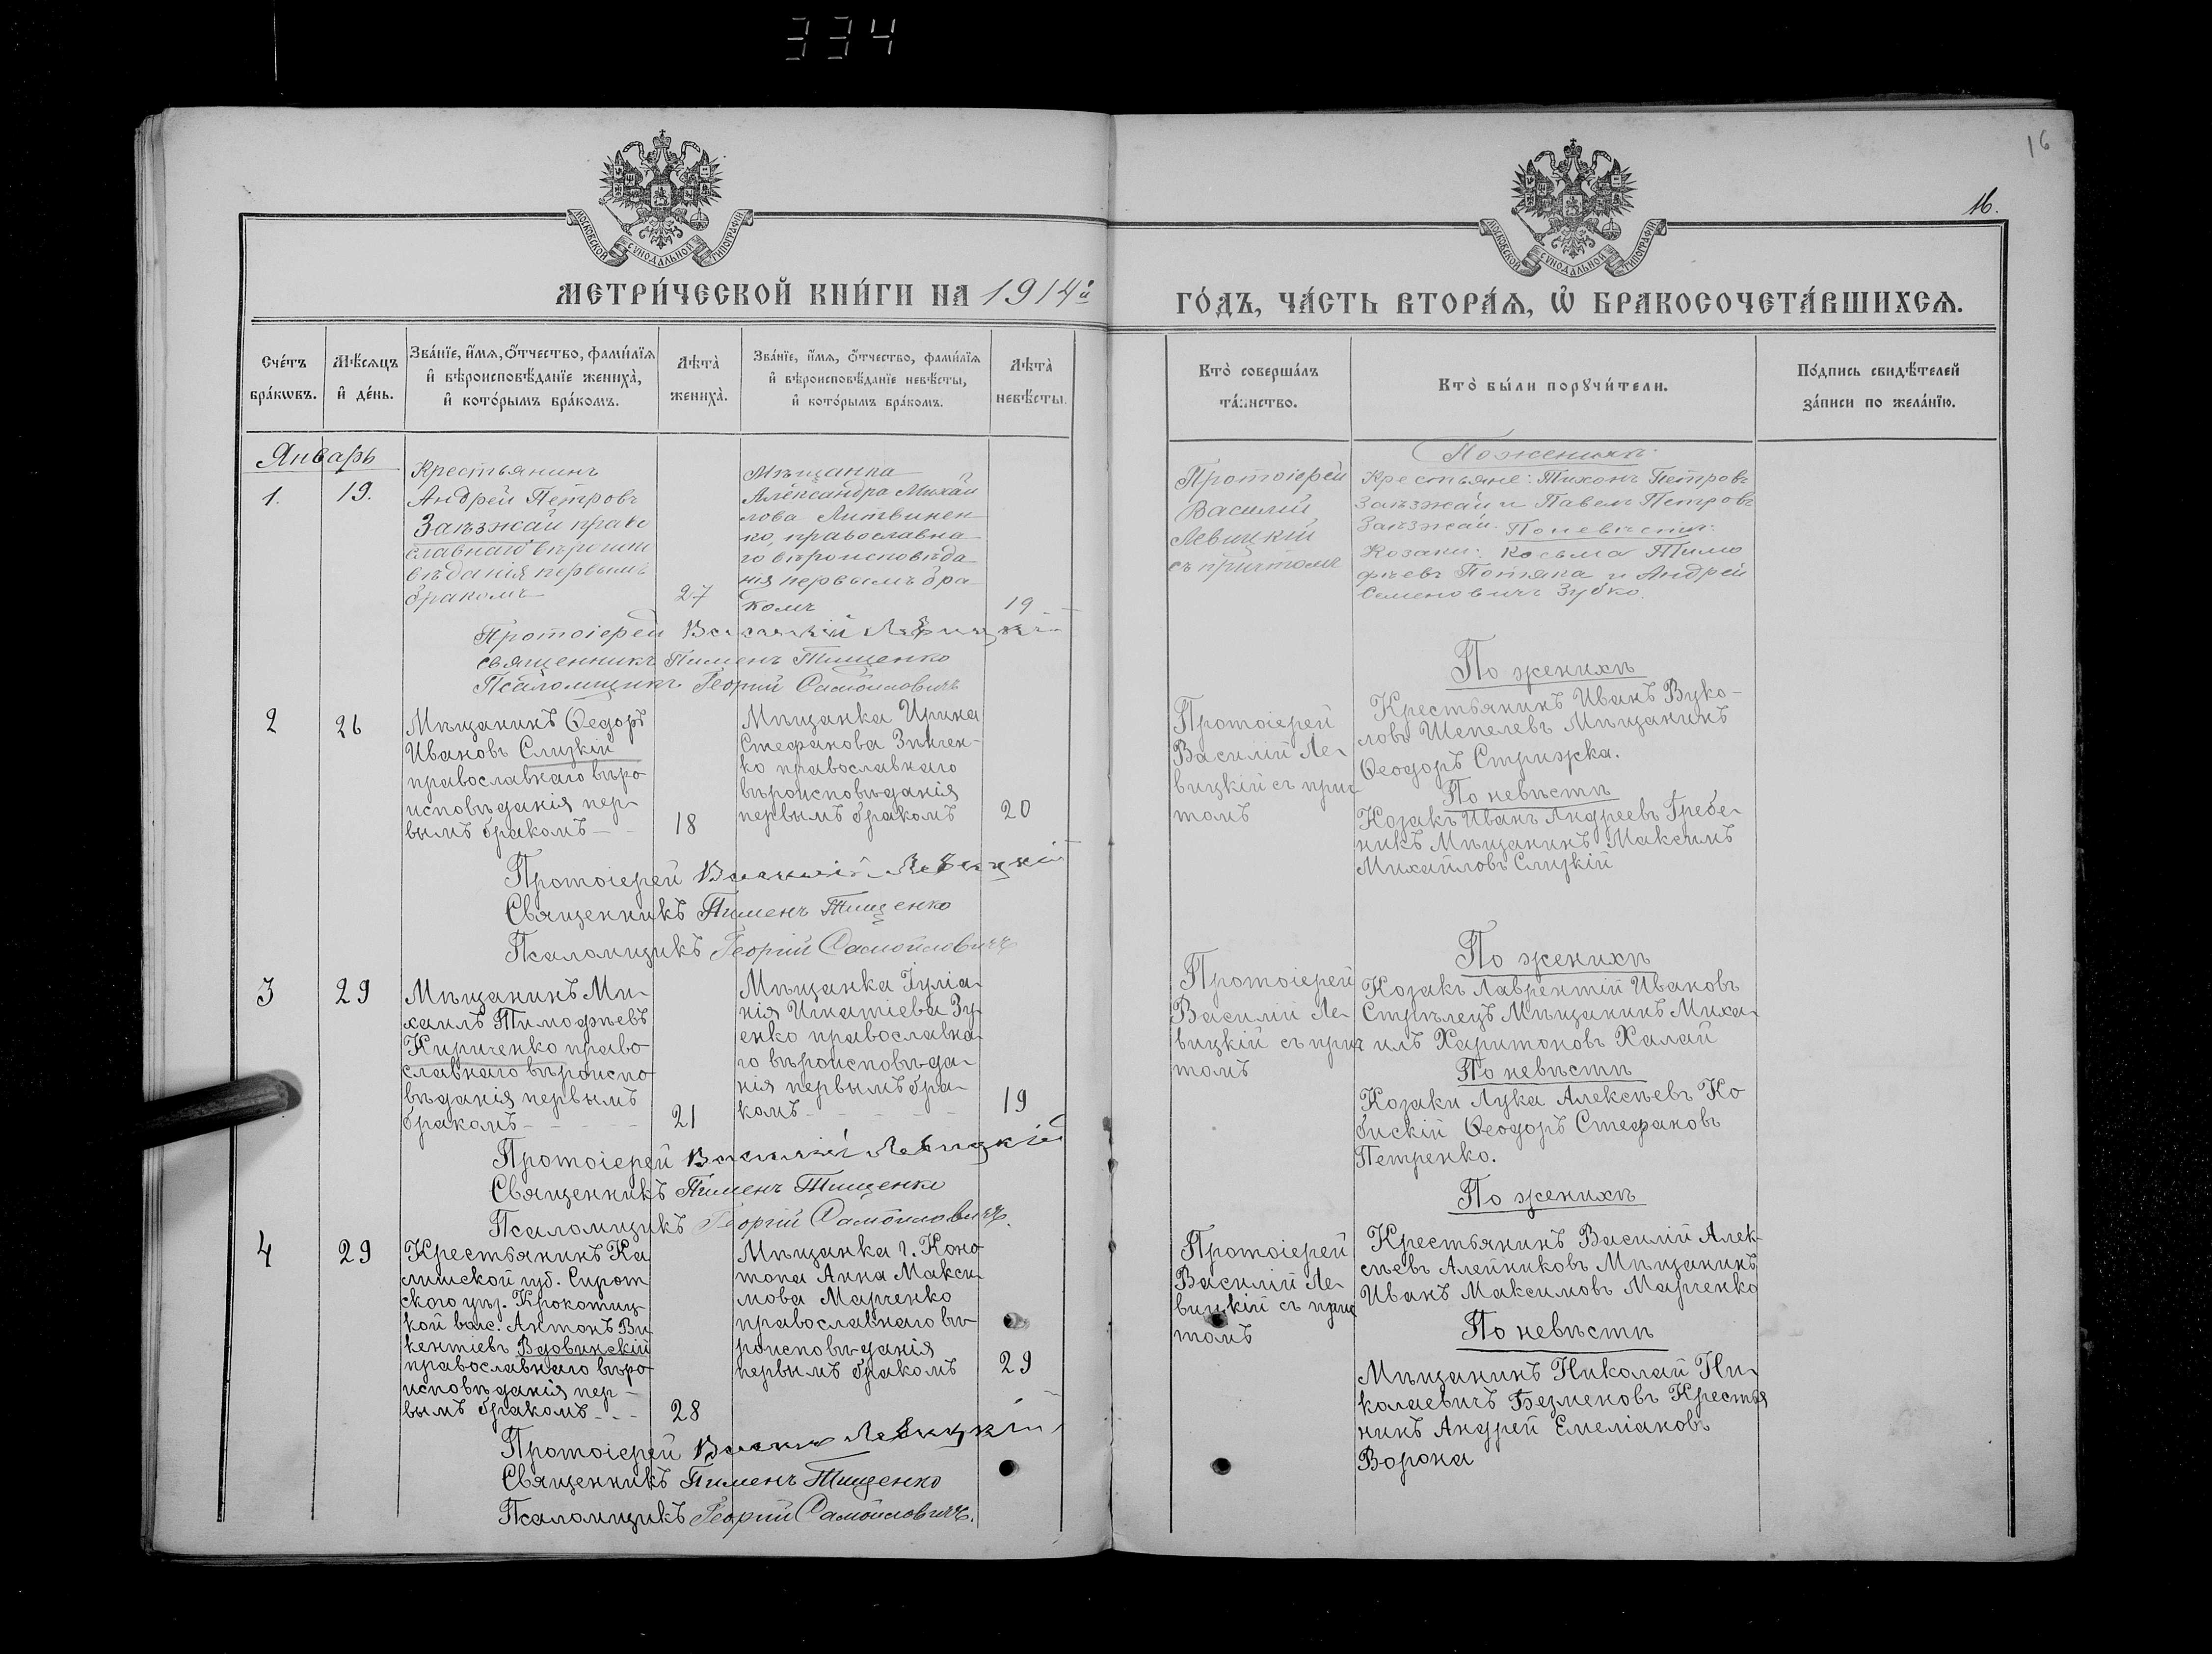 334
16
16.
МОСКОВСКОЙ СУНОДАЛЬНОЙ ТИПОГРАФІИ
МОСКОВСКОЙ СУНОДАЛЬНОЙ ТИПОГРАФІИ
МЕТРИ́ЧЕСКОЙ КНИ́ГИ НА 1914й
ГО́ДЪ, ЧА́СТЬ ВТОРА́Ѧ, Ѽ БРАКОСОЧЕТА́ВШИХСѦ.
Сче́тъ бра́кѡвъ.
Мѣ́сяцъ и҆ де́нь.
Зва́нїе, и҆́мѧ, ѻ҆́тчество, фами́лїѧ
и҆ вѣроисповѣ́данїе жениха̀,
и҆ кото́рымъ бра́комъ.
Лѣ́та̀
жениха̀.
Зва́нїе, и҆́мѧ, ѻ҆́тчество, фами́лїѧ
и҆ вѣроисповѣ́данїе невѣ́сты,
и҆ кото́рымъ бра́комъ.
Лѣ́та̀
невѣ́сты.
Кто̀ соверша́лъ
та́инство.
Кто̀ бы́ли порꙋчи́тели.
По́дпись свидѣ́телей
за́писи по жела́нїю.
Январь
1.
19.
Крестьянинъ
Андрей Петровъ
Заѣзжай право
славнаго вѣроиспо
вѣданія первымъ
бракомъ
27
Мѣщанка
Александра Михай
лова Литвинен
ко, православна
го вѣроисповѣда
нія первымъ бра
комъ
19
Протоіерей
Василій
Левицкій
съ причтомъ
По женихѣ:
Крестьяне: Тихонъ Петровъ
Заѣзжай и Павелъ Петровъ
Заѣзжай. По невѣстѣ:
Козаки: Косьма Тимо
фѣевъ Потяка и Андрей
Семеновичъ Зубко.
Протоіерей Василій Левицкій
Священникъ Пименъ Тищенко
Псаломщикъ Георгій Самойловичъ
2
26
Мѣщанинъ Ѳедоръ
Ивановъ Слизкій
православнаго вѣро
исповѣданія пер-
вымъ бракомъ
18
Мѣщанка Ирина
Стефанова Зѣнчен-
ко православнаго
вѣроисповѣданія
первымъ бракомъ
20
Протоіерей
Василій Ле-
вицкій съ прич
томъ
По женихѣ
Крестьянинъ Иванъ Вуко-
ловъ Шепелевъ Мѣщанинъ
Ѳеодоръ Стрижка.
По невѣстѣ
Козакъ Иванъ Андреевъ Гребе-
никъ Мѣщанинъ Максимъ
Михайловъ Слизкій
Протоіерей Василій Левицкій
Священникъ Пименъ Тищенко
Псаломщикъ Георгій Самойловичъ
3
29
Мѣщанинъ Ми-
хаилъ Тимофѣевъ
Кириченко право
славнаго вѣроиспо
вѣданія первымъ
бракомъ
21
Мѣщанка Іуліа-
нія Игнатіева Зу-
енко православна-
го вѣроисповѣда-
нія первымъ бра-
комъ
19
Протоіерей
Василій Ле-
вицкій съ прич
томъ
По женихѣ
Козакъ Лаврентій Ивановъ
Стрѣлецъ Мѣщанинъ Миха-
илъ Харитоновъ Халай
По невѣстѣ
Козаки Лука Алексѣевъ Ко
бискій Ѳеодоръ Стефановъ
Петренко.
Протоіерей Василій Левицкій
Священникъ Пименъ Тищенко
Псаломщикъ Георгій Самойловичъ.
4
29
Крестьянинъ Ка
лишской губ. Сирот
ского уѣз. Крокотиц
кой вол. Антонъ Ви
кентіевъ Вдовинскій
православнаго вѣро
исповѣданія пер-
вымъ бракомъ
28
Мѣщанка г. Коно
топа Анна Макси-
мова Марченко
православнаго вѣ-
роисповѣданія
первымъ бракомъ
29
Протоіерей
Василій Ле-
вицкій съ прич
томъ
По женихѣ
Крестьянинъ Василій Алек-
сѣевъ Алейниковъ Мѣщанинъ
Иванъ Максимовъ Марченко
По невѣстѣ
Мѣщанинъ Николай Ни-
колаевичъ Безменовъ Крестья
нинъ Андрей Емеліановъ
Ворона
Протоіерей Василій Левицкій
Священникъ Пименъ Тищенко
Псаломщикъ Георгій Самойловичъ.